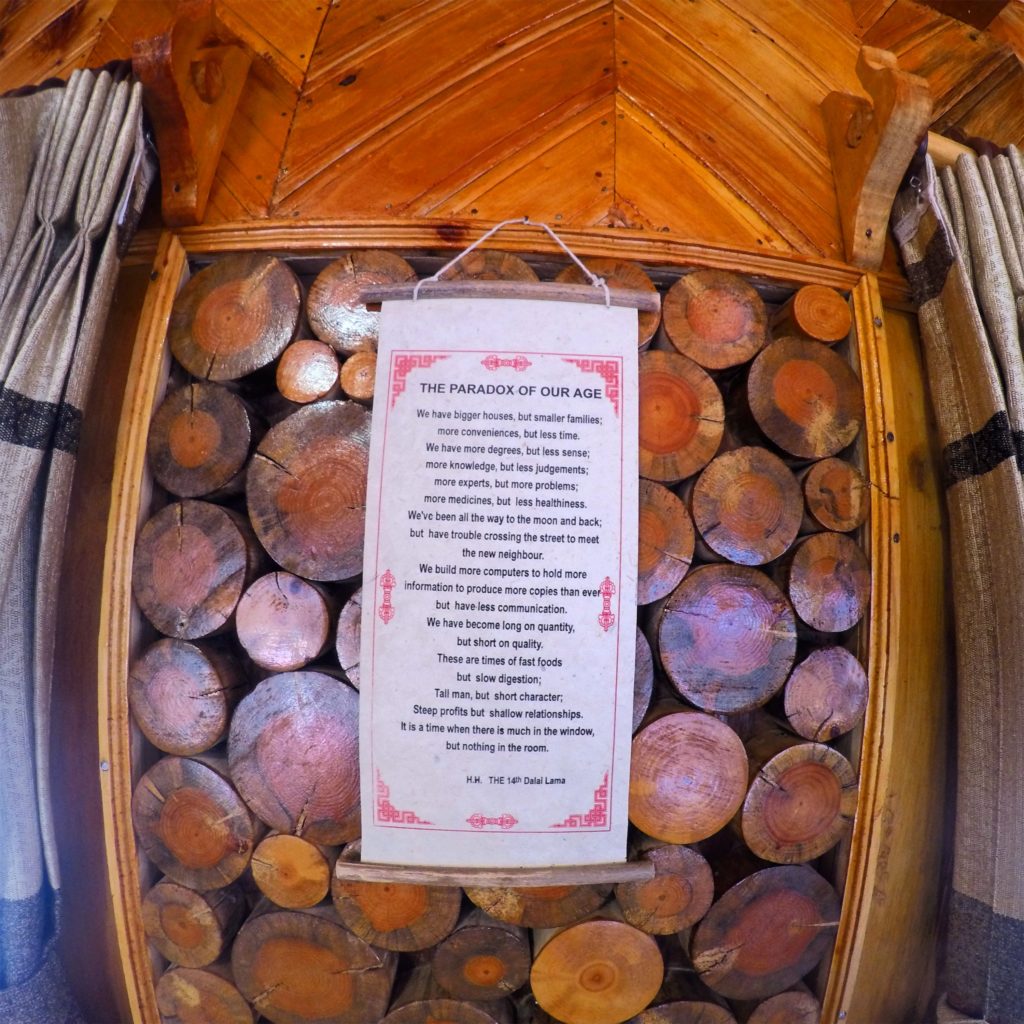 THE PARADOX OF OUR AGE
We have bigger houses, but smaller families;
more conveniences, but less time.
We have more degrees, but less sense;
more knowledge, but less judgements;
more experts, but more problems;
more medicines, but less healthiness.
We've been all the way to the moon and back;
but have trouble crossing the street to meet
the new neighbour.
We build more computers to hold more
information to produce more copies than ever
but have less communication.
We have become long on quantity,
but short on quality.
These are times of fast foods
but slow digestion;
Tall man, but short character;
Steep profits but shallow relationships.
It is a time when there is much in the window,
but nothing in the room.
H.H. THE 14th Dalai Lama